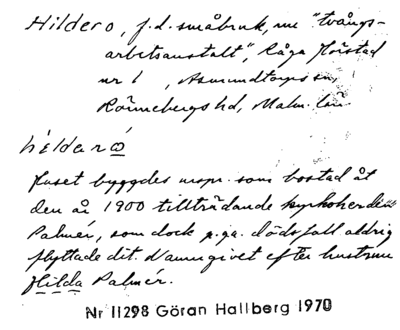 Hildero, f.d. småbruk, nu "tvångs-
arbetsanstalt", Råga Hörstad
nr 1, Asmundtorps sn,
Rönnebergs hd, Malm. län
hìlderó
Huset byggdes urspr. som bostad åt
den år 1900 tillträdande kyrkoherden
Palmér, som dock p.ga. dödsfall aldrig
flyttade dit. Namngivet efter hustrun
Hilda Palmér.
Nr 11298 Göran Hallberg 1970